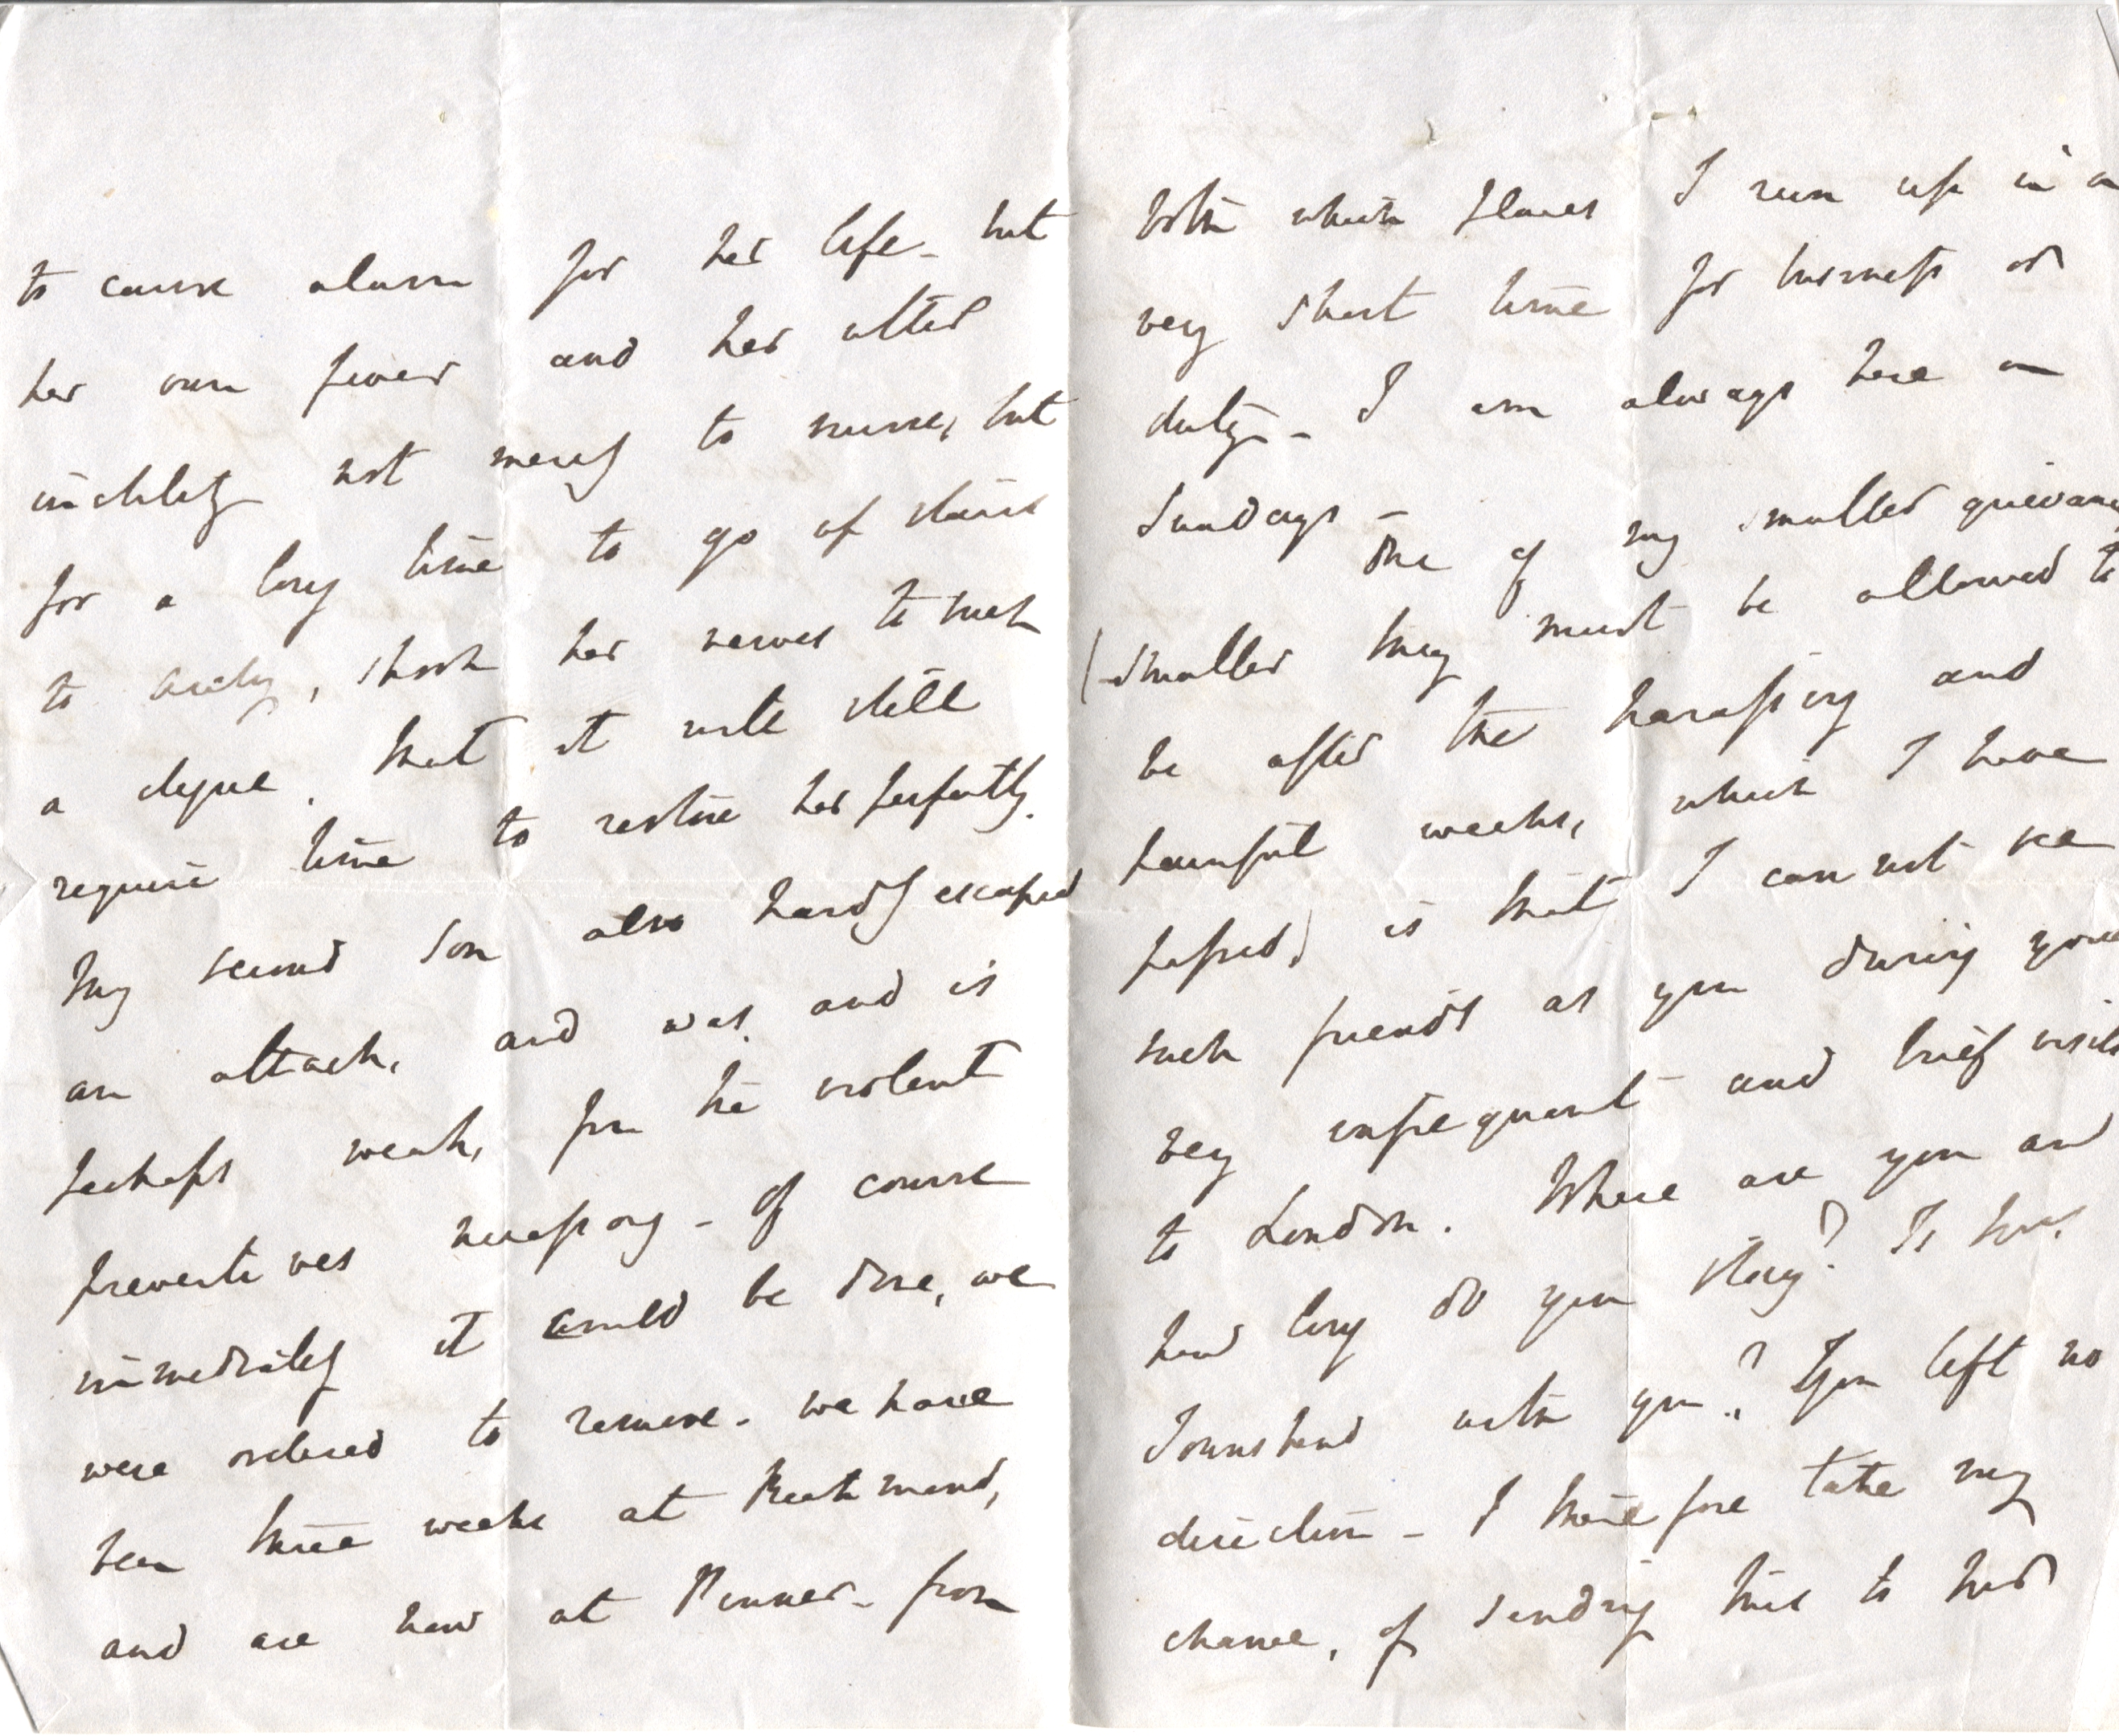 to cause alarm for her life - but
her own fever and her utter
inability not merely to nurse, but
for a long time to go up stairs
to Cicely, shook her nerves to such
a degree that it will still
require time to restore her perfectly.
My second son also hardly escaped
an attack, and was and is
perhaps weak, from the violent
preventives necessary - Of course
immediately it could be done, we
were ordered to remove. We have
been three weeks at Richmond,
and are now at Pinner - from
both which places I run up in a
very short time for business or
duty - I am always here on
Sundays -
One of my smaller grievances
(smaller they must be allowed to
be after the harassing and
painful weeks, which I have
passed) is that I can not see
such friends as you during your
very infrequent and brief visits
to London. Where are you and
how long do you stay? Is Mrs.
Townshend with you? You left no
direction - I therefore take my
chance, of sending this to